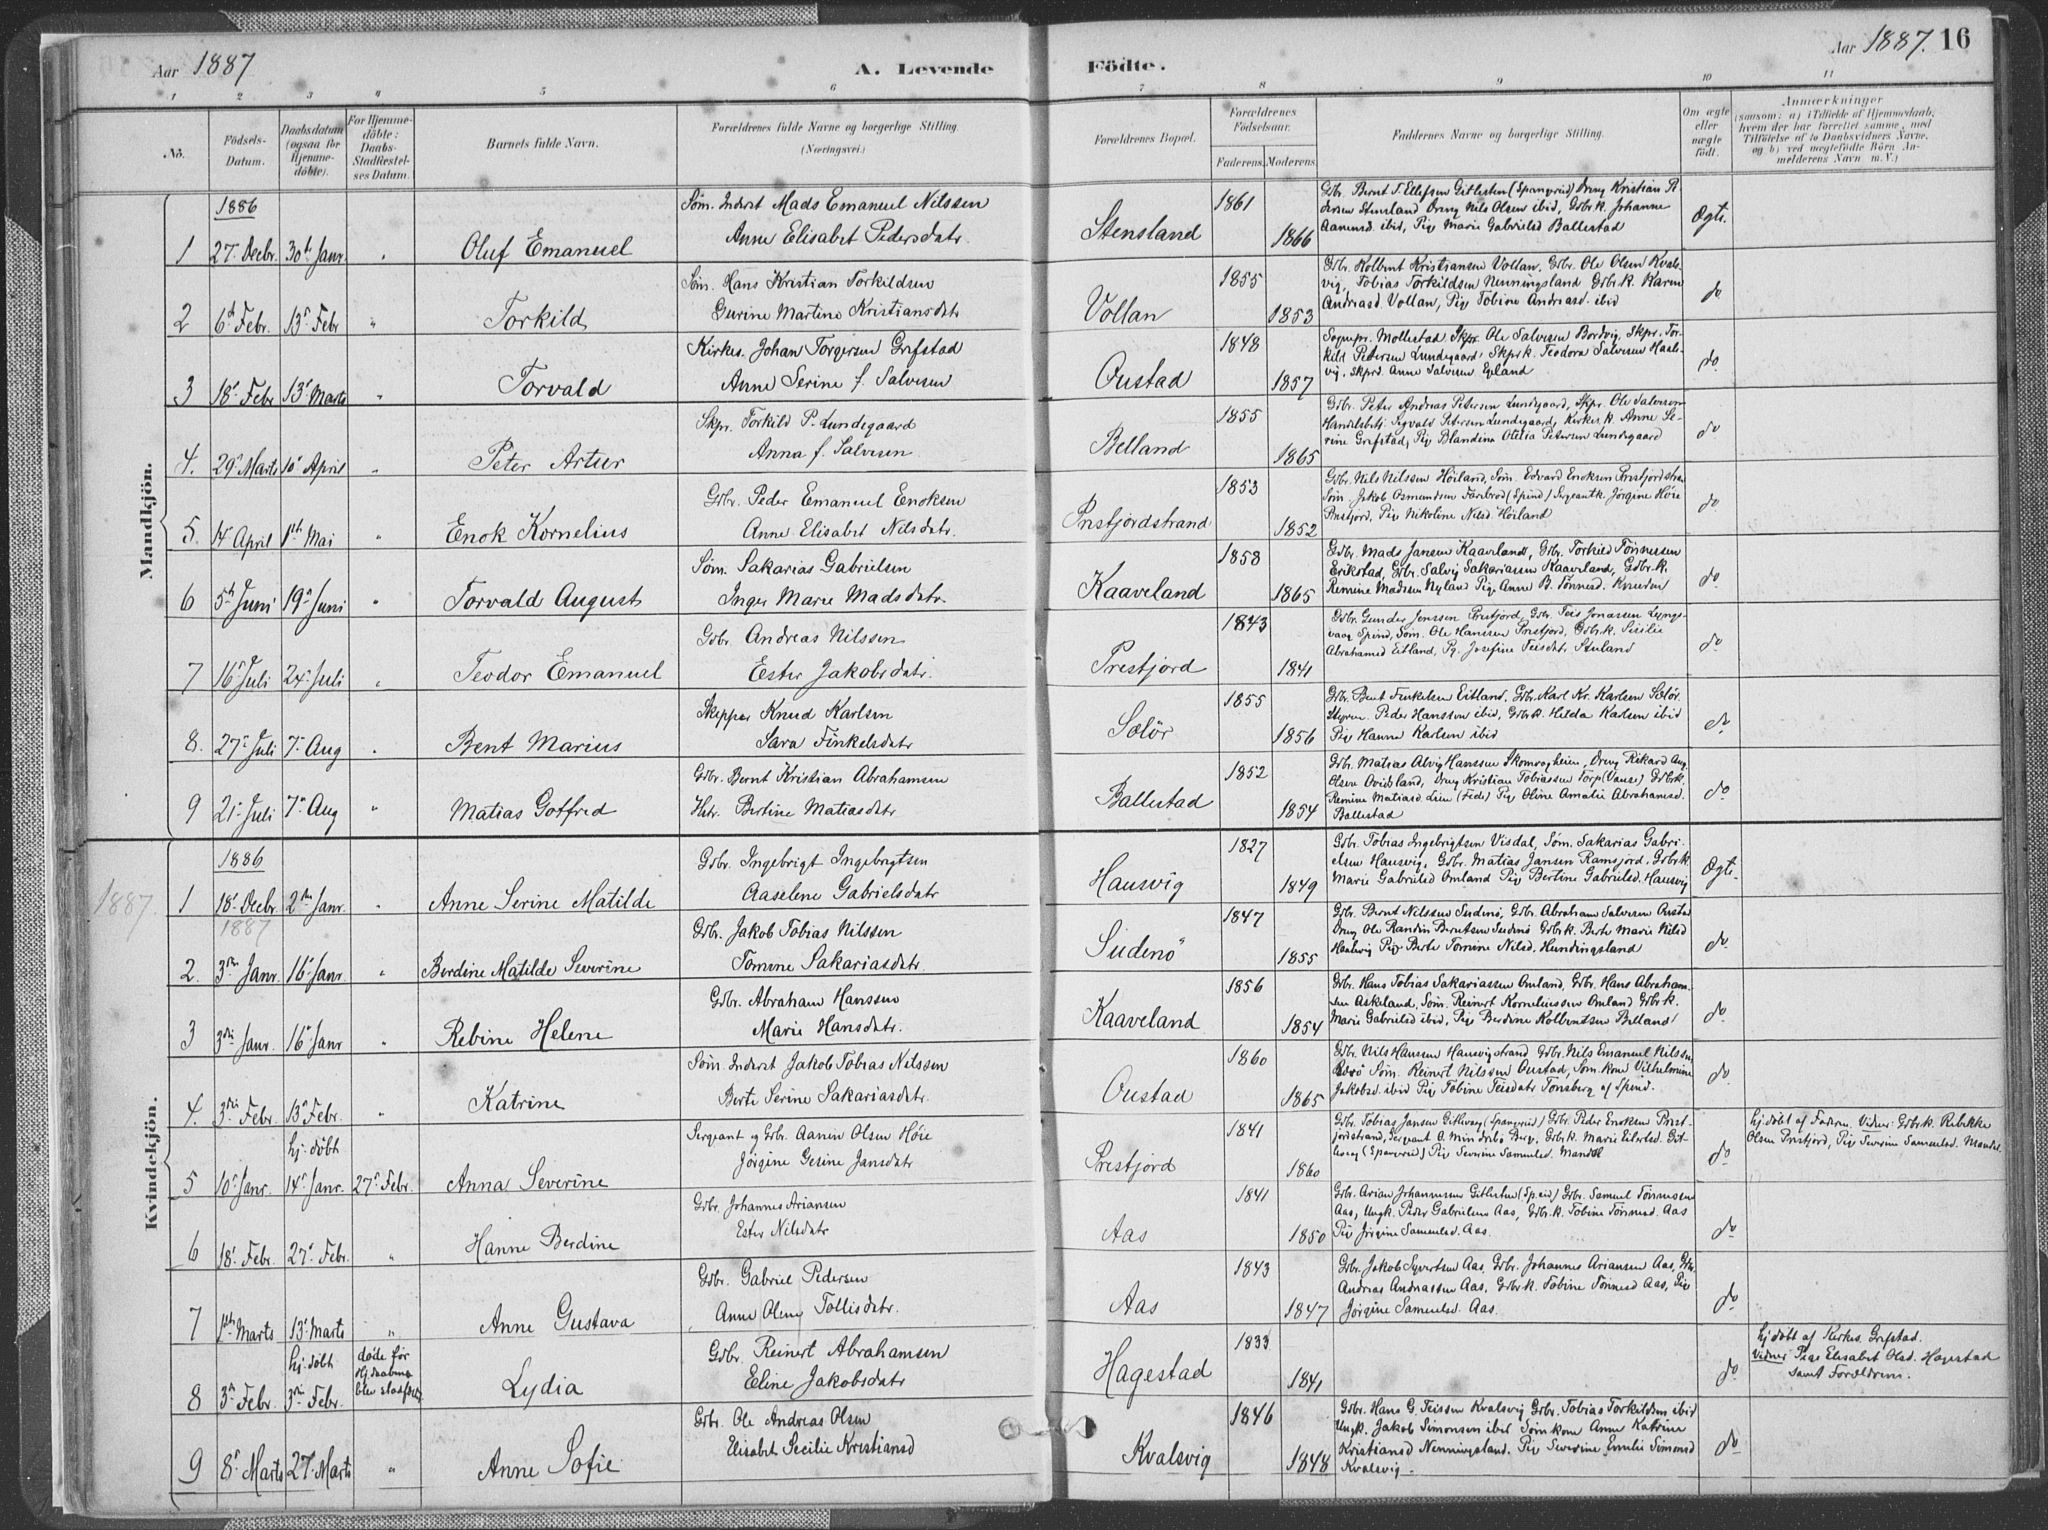 Aar 1887
A. Levende
Fødte.
Aar 1887. 16
1 2 3 4 5 6 7 8 9 10 11
No.
Födsels-Datum.
Daabsdatum (ogsaa for Hjemme-döbte).
For Hjemme-döbte: Daabs-Stadfæstel-ses Datum.
Barnets fulde Navn.
Forældrenes fulde Navne og borgerlige Stilling. (Næringsvei.)
Forældrenes Bopæl.
Forældrenes Födselsaar.
Faderens. Moderens.
Faddernes Navne og borgerlige Stilling.
Om ægte eller uægte født.
Anmærkninger
(saasom: a) i Tilfælde af Hjemmedaab, hvem der har forrettet samme, med Tilføielse af to Daabsvidners Navne, og b) ved uægtefödte Börn Anmelderens Navn m. V.)
Mandkjön.
1886
1 27. Decbr. 30te Janr. " Oluf Emanuel
Søm. Inderst Mads Emanuel Nilssen
Anne Elisabet Pedersdatr.
Stensland 1861 1866
Gbr. Bernt T. Ellefsen Gitlesten (Spangereid) Dreng Kristian Pe-
dersen Stensland Dreng Nils Olsen ibid, Gbr.k. Johanne
Aanensd. ibid, Pige Marie Gabrielsd Ballestad
Ægte.
2 6te Febr. 13d Febr " Torkild
Søm. Hans Kristian Torkildsen
Gurine Martine Kristiansdatr
Vollan 1855 1853
Gbr. Kolbent Kristiansen Vollan, Gbr. Ole Olsen Kvals-
vig, Tobias Torkildsen Nenningsland Gbr.k. Karen
Andreasd Vollan, Pige Tobine Andreasd. ibid
do
3 18d Febr 13d Marts " Torvald
Kirkes. Johan Torgersen Grefstad
Anne Serine f. Salvesen
Oustad 1848 1857
Sognepr. Mollestad Skpr. Ole Salvesen Bordvig, Skpr. Tor-
kild Petersen Lundegaard, Skpr.k. Teodora Salvesen Haals-
vig, Skprd. Anne Salvesen Egeland
do
4. 29d Marts 10d April " Peter Artur
Skpr. Torkild P. Lundegaard
Anna f. Salvesen
Belland 1855 1865
Gbr. Peter Andreas Petersen Lundegaard, Skpr. Ole Salvesen
Handelsbetj. Sigvald Petersen Lundegaard, Kirkes.k. Anne Se-
rine Grefstad, Pige Blandina Otelia Petersen Lundegaard
do
5. 14 April 1ste Mai " Enok Kornelius
Gbr. Peder Emanuel Enoksen
Anne Elisabet Nilsdatr.
Prestfjordstrand 1853 1852
Gbr. Nils Nilssen Høiland, Søm. Edvard Enoksen Prestfjordstran
Søm. Jakob Osmundsen Farebrod (Spind) Sergeantk. Jørgine Høie
Prestfjord, Pige Nikoline Nilsd. Høiland
do
6 5te Juni 19d Juni " Torvald August
Søm. Sakarias Gabrielsen
Inger Marie Madsdatr.
Kaaveland 1858 1865
Gbr. Mads Jansen Kaaveland, Gbr. Torkild Tønnessen
Erikstad, Gbr. Salvig Sakariassen Kaaveland, Gbr.k.
Remine Madssen Nyland Pige Anne B. Tønnesd. Knuden
do
7 16d Juli 24. Juli " Teodor Emanuel
Gbr. Andreas Nilssen
Ester Jakobsdatr.
Prestfjord 1843 1841
Gbr. Gunder Jenssen Prestfjord, Gbr. Teis Jonassen Lyngs-
vaag Spind, Søm. Ole Hanssen Prestfjord, Gbr.k. Sesilie
Abrahamsd Eitland, Pg. Josefine Teisdatr Stuland
do
8. 27d Juli 7. Aug " Bent Marius
Skipper Knud Karlsen
Sara Finkelsdatr
Selør 1855 1856
Gbr. Bent Finkelsen Eitland, Gbr. Karl Kr. Karlsen Selør
Styrm. Peder Hanssen ibid, Gbr.k. Hilda Karlsen ibid
Pige Hanne Karlsen ibid
do
9 21. Juli 7d Aug " Matias Gotfred
Gbr. Bernt Kristian Abrahamsen
Hstr. Bertine Matiasdatr
Ballestad 1852 1854
Gbr. Matias Alvig Hanssen Skomrogheien, Dreng Rikard Aug.
Olsen Ovidsland, Dreng Kristian Tobiassen Torp (Vanse) Gbr.k.
Remine Matiasd. Lien (Fede) Pige Oline Amalie Abrahamsd.
Ballestad
do
1887.
Kvindekjön.
1886
1 18d Decbr. 2den Janr. " Anne Serine Matilde
Gbr. Ingebrigt Ingebrigtsen
Aaselene Gabrielsdatr
Hausvig 1827 1849
Gbr. Tobias Ingebrigtsen Visdal, Søm. Sakarias Gabri-
elsen Hausvig, Gbr. Matias Jansen Ramsjord, Gbr.k
Marie Gabrielsd Omland Pige Bertine Gabrielsd. Hausvig
Ægte.
1887
2. 3die Janr. 16d Janr. " Berdine Matilde Severine
Gbr. Jakob Tobias Nilssen
Tomine Sakariasdatr.
Sudenø 1847 1855
Gbr. Bernt Nilssen Sudenø, Gbr. Abraham Salvesen Oustad
Dreng Ole Randin Berntsen Sudenø Gbr.k. Berte Marie Nilsd
Haalvig Pige Berte Tomine Nilsd. Hundingsland
do
3 3die Janr. 16d Janr " Rebine Helene
Gbr. Abraham Hanssen
Marie Hansdatr.
Kaaveland 1856 1854
Gbr. Hans Tobias Sakariassen Omland, Gbr. Hans Abraham-
sen Askeland, Søm. Reinert Korneliussen Omland Gbr.k.
Marie Gabrielsd ibid, Pige Berdine Kolbentsen Belland
do
4. 3die Febr. 13d Febr. " Katrine
Søm. Inderst Jakob Tobias Nilssen
Berte Serine Sakariasdatr.
Oustad 1860 1865
Gbr. Nils Hanssen Hausvigstrand Gbr. Nils Emanuel Nilssen
Søm. Reinert Nilssen Oustad, Sømkone Vilhelmine
Jakobsd. ibid Pige Tobine Teisdatr Tønsberg af Spind.
do
hj. døbt
5 10d Janr. 14d Janr. 27d Febr. Anna Severine
Sergeant og Gbr. Aanen Olsen Høie
Jørgine Gesine Jansdatr
Prestfjord 1841 1860
Gbr. Tobias Jansen Gitlevaag (Spangereid) Gbr. Peder Enoksen Prest-
fjordstrand, Sergeant O. Mindrebø Berg, Gbr.k. Marie Eilertsd. Git-
levaag (Spangereid) Pige Severine Samuelsd. Mandal
do
hj. døbt af Faderen. Vidner: Gbr.k. Rebekke
Olsen Prestfjord, Pige Severine Samuelsd. Mandal.
6 18d Febr. 27d Febr. " Hanne Berdine
Gbr. Johannes Ariansen
Ester Nilsdatr
Aas 1841 1850
Gbr. Arian Johannessen Gitlesten (Sp.eid) Gbr. Samuel Tønnessen
Aas, Ungk. Peder Gabrielsen Aas, Gbr.k. Tobine Tønnesd. Aas
Pige Jørgine Samuelsd. Aas.
do
7 1ste Marts 13d Marts " Anne Gustava
Gbr. Gabriel Pedersen
Anne Oline Tollisdatr.
Aas 1843 1847
Gbr. Jakob Syvertsen Aas, Gbr. Johannes Ariansen Aas, Gbr.
Andreas Andreassen Aas, Gbr.k. Tobine Tønnesd Aas, Pige
Jørgine Samuelsd. Aas.
do
hj. døbt døde før
Hj.daaben
blev stadfæstet
8 3die Febr. 3die Febr. Lydia
Gbr. Reinert Abrahamsen
Eline Jakobsdatr
Hagestad 1833 1841
do
hj. døbt af Kirkes. Grefstad.
Vidner Pige Elisabet Olsd. Hagestad
samt Forældrene.
9 8d Marts 27. Marts " Anne Sofie
Gbr. Ole Andreas Olsen
Elisabet Secilie Kristiansd
Kvalsvig 1846 1848
Gbr. Hans G. Teissen Kvalsvig Gbr. Tobias Torkildsen ibid
Ungk. Jakob Simonsen ibid Sømkone Anne Katrine
Kristiansd Nenningsland. Pige Severine Emilie Simonsd
Kvalsvig.
do